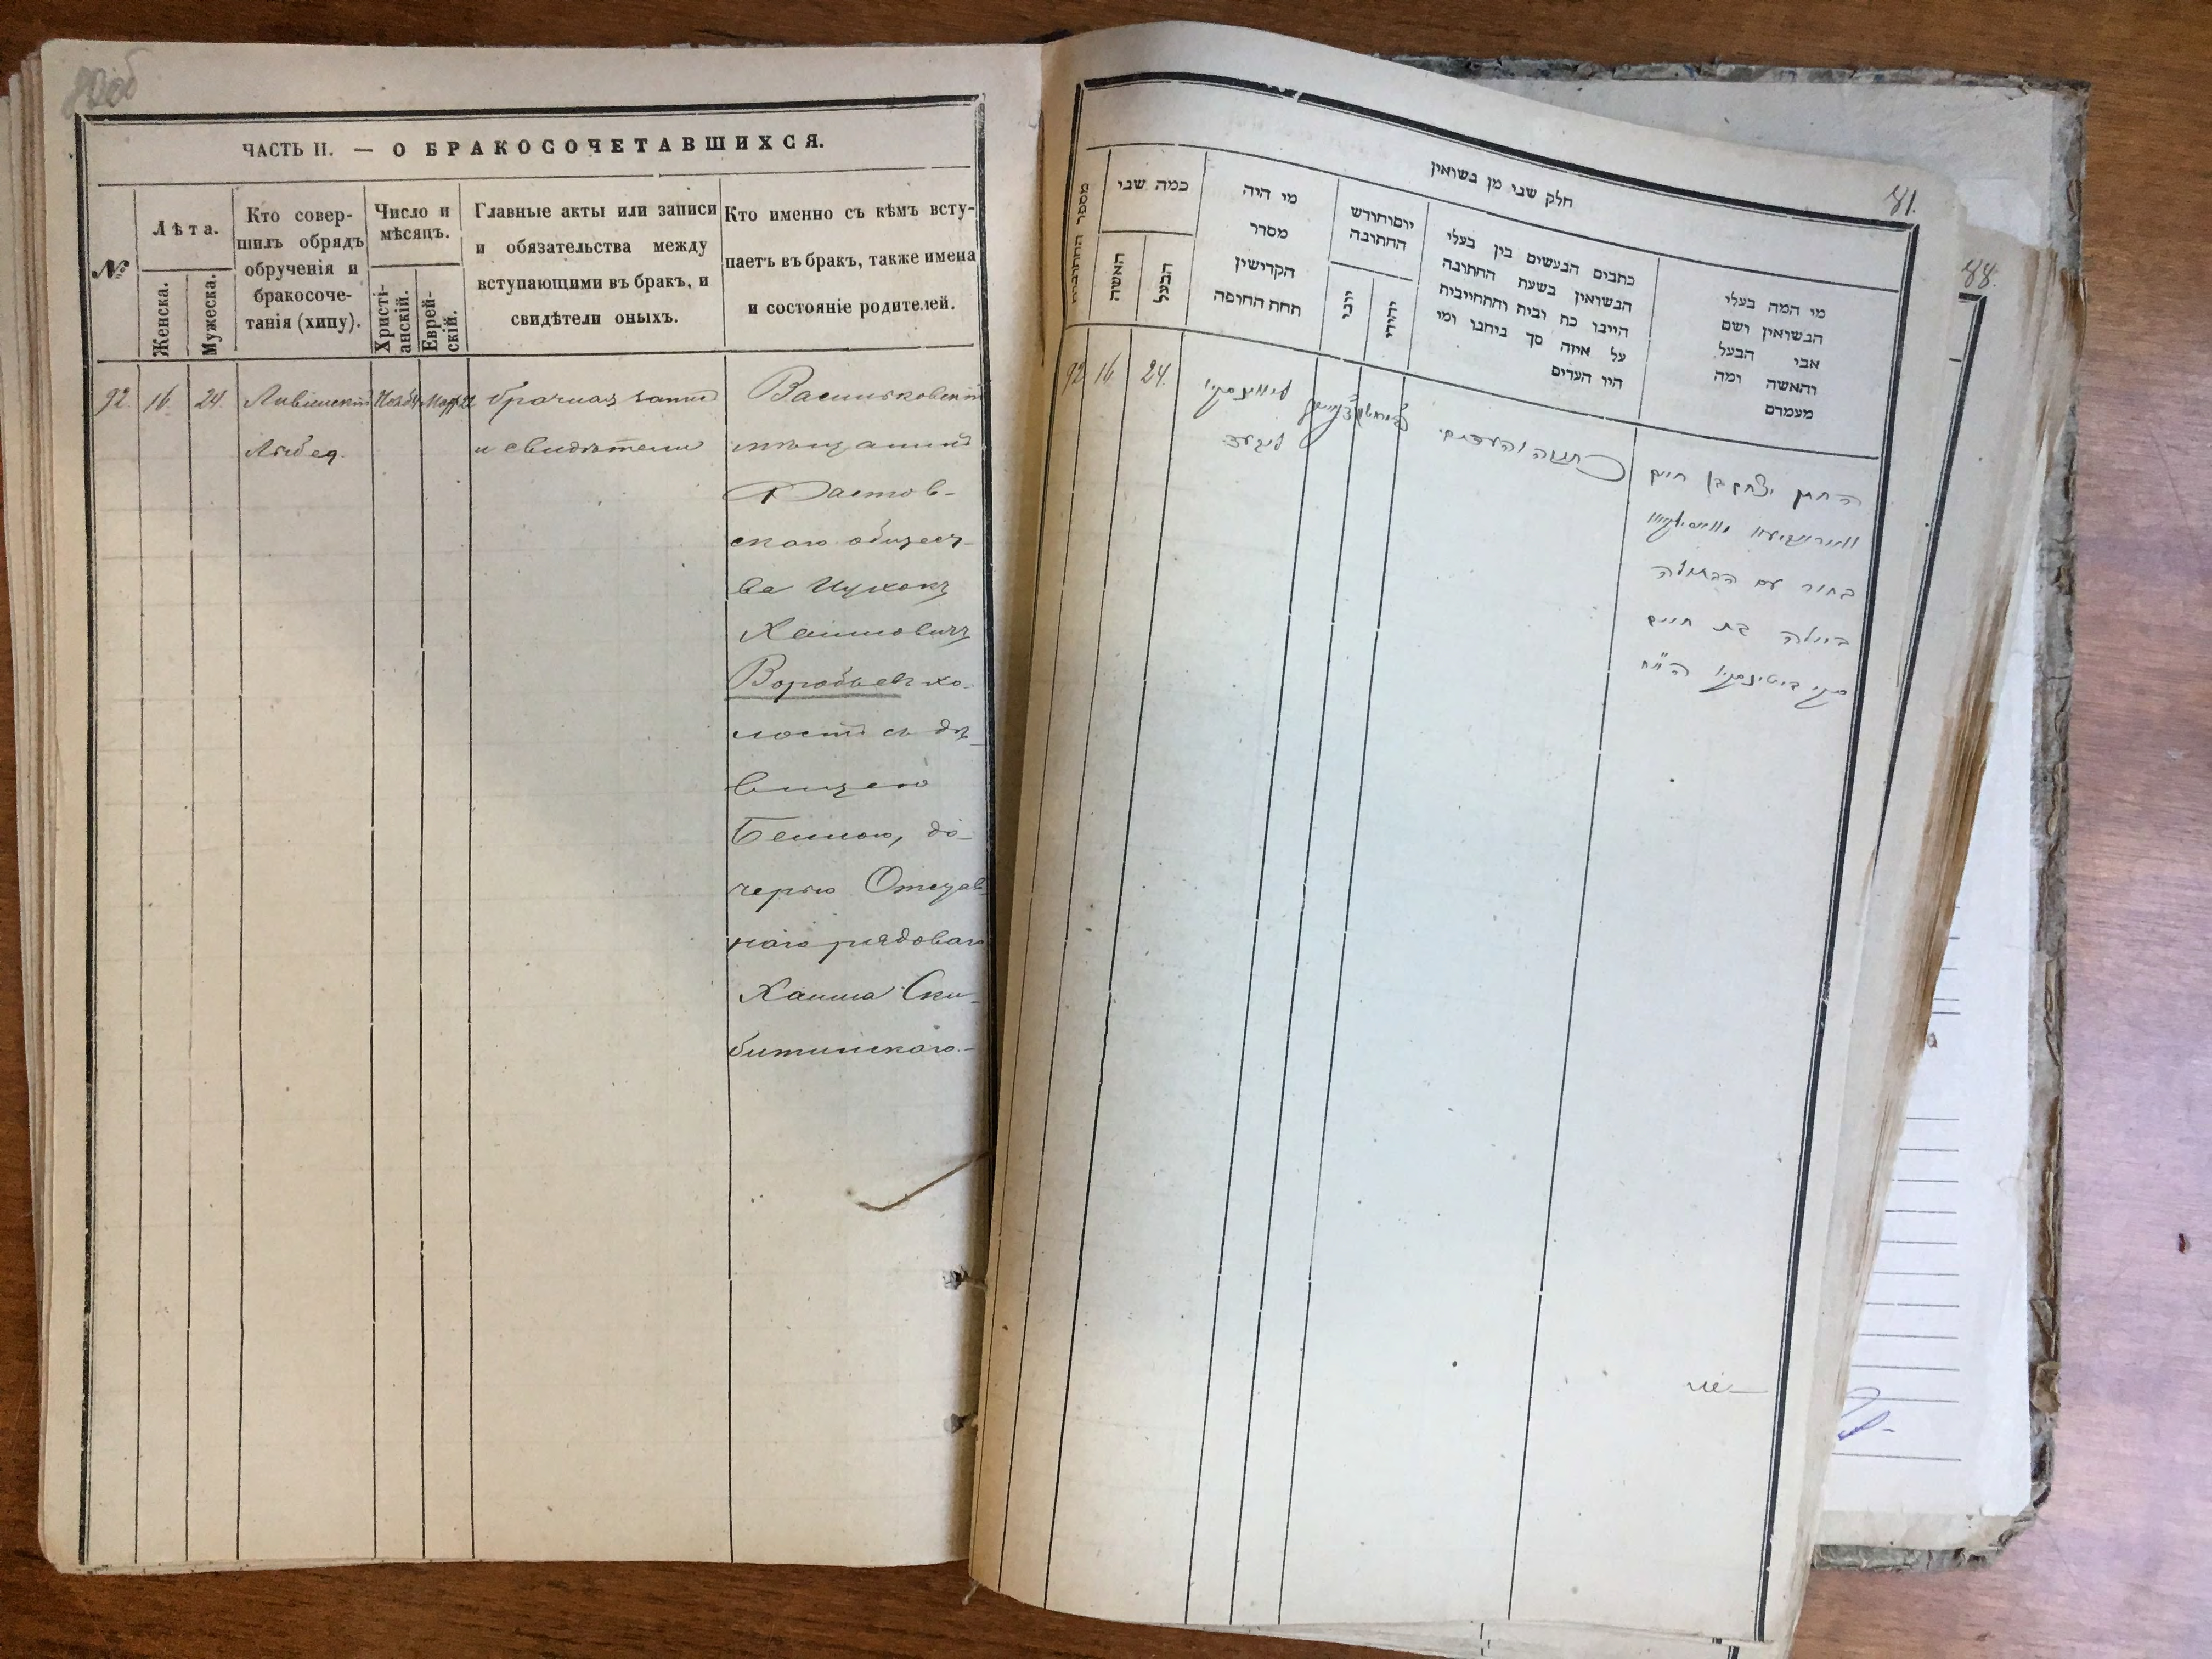 80об
ЧАСТЬ II. — О БРАКОСОЧЕТАВШИХСЯ.
№
Лѣта.
Женска.
Мужеска.
Кто совер-
шилъ обрядъ
обрученія и
бракосоче-
танія (хипу).
Число и
мѣсяцъ.
Христі-
анскій.
Еврей-
скій.
Главные акты или записи
и обязательства между
вступающими въ бракъ, и
свидѣтели оныхъ.
Кто именно съ кѣмъ всту-
паетъ въ бракъ, также имена
и состояніе родителей.
92.
16.
24.
Лившинскій
брачная запись
и свидѣтели
Васильковскій
мѣщанинъ
Фастов-
скаго общест-
ва Ицхокъ
Хаимовичъ
Воробьевъ хо-
лостъ съ дѣ-
вицею
Бейлою, до-
черью Отстав-
наго рядоваго
Хаима Ски-
битинскаго.-
81.
חלק שני מן נשואין
מספר החתונות
כמה שני
האשה
הבעל
מי היה
מסדר
הקדישין
תחת החופה
יום וחודש
החתונה
יוני
יהודי
כתבים הנעשים בין בעלי
הנשואין בשעת החתונה
היינו כח ובית והתחייבית
על איזה סך ביחנו ומי
היו העדים
מי המה בעלי
הנשואין ושם
אבי הבעל
והאשה ומה
מעמדם
92
16
24.
כתובה והעדים.
החתן יצחק בן חיים
בחור עם הבתולה
ביילה בת חיים
88.